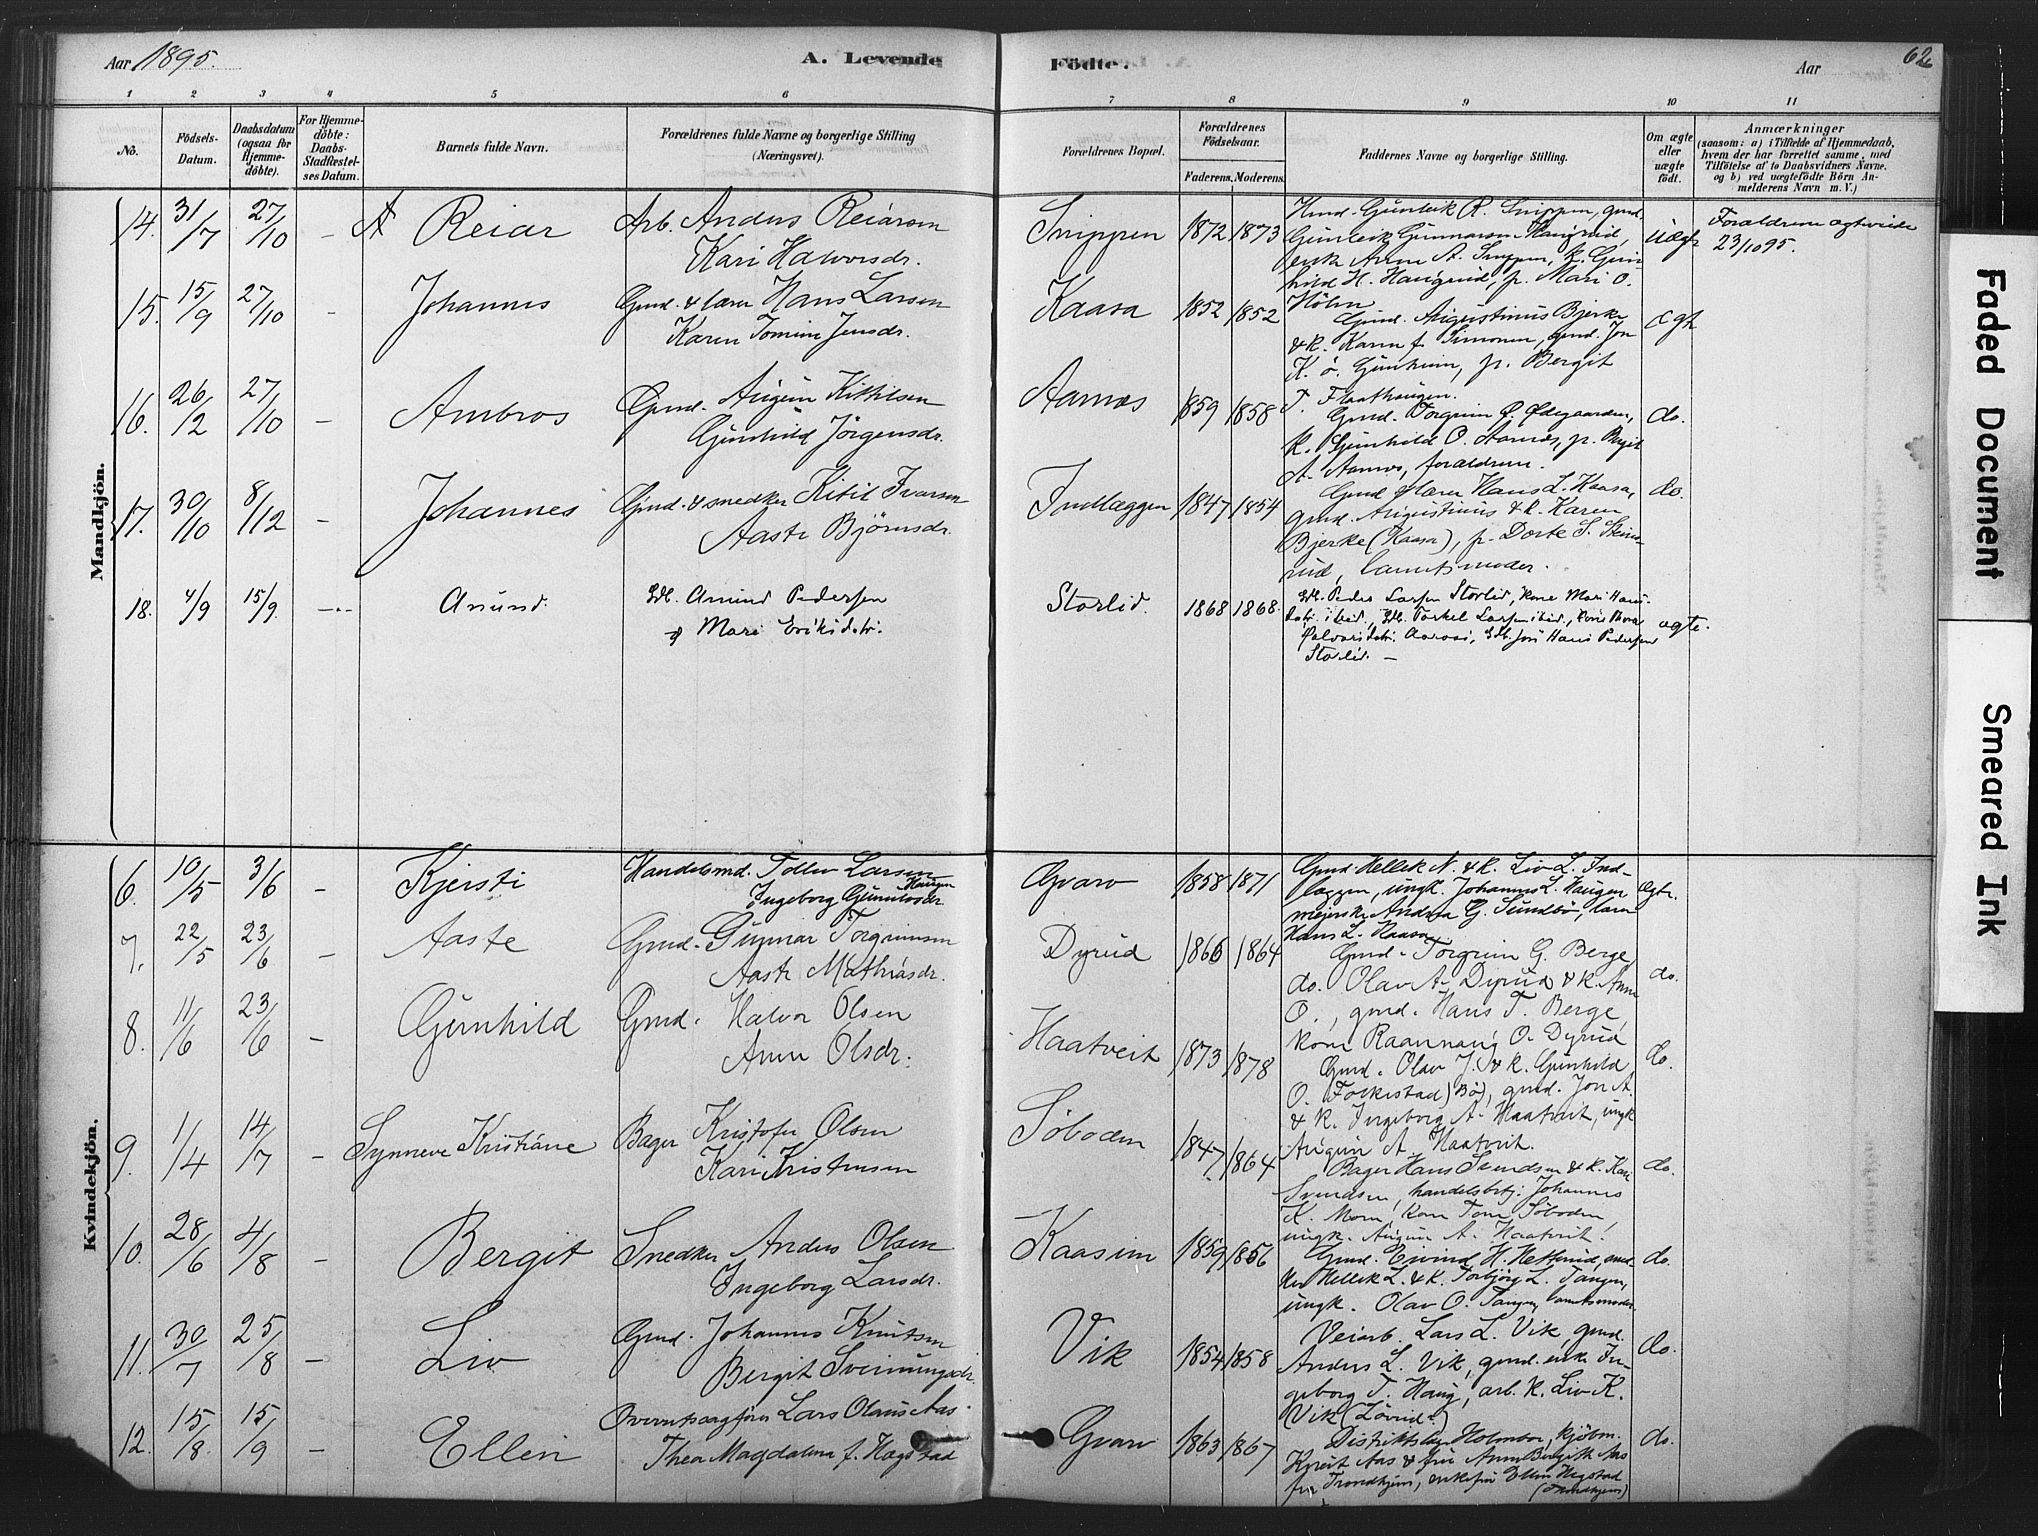 Aar 1895.
A. Levende
Födte.
Aar
62
1 2 3 4 5 6 7 8 9 10 11
No.
Födsels-
Datum.
Daabsdatum
(ogsaa for
Hjemme-
döbte).
For Hjemme-
döbte:
Daabs-
Stadfæstel-
ses Datum.
Barnets fulde Navn.
Forældrenes fulde Navne og borgerlige Stilling
(Næringsvei).
Forældrenes Bopæl.
Forældrenes
Födselsaar.
Faderens. Moderens.
Faddernes Navne og borgerlige Stilling.
Om ægte
eller
uægte
födt.
Anmærkninger
(saasom: a) i Tilfælde af Hjemmedaab,
hvem der har forrettet samme, med
Tilföielse af to Daabsvidners Navne,
og b) ved uægtefödte Börn An-
melderens Navn m. V.)
Mandkjön.
14. 31/7 27/10 – Reiar
Arb. Anders Reiarsen
Kari Halvorsdr.
Snippen 1872 1873
Gunleik R. Snippen, gmd.
Gunleik Gunnarsen Haugrud,
enke Anne A. Snippen, k. Gun-
hild H. Haugrud, p. Mari O.
Uægte
Forældrene ægteviede
23/10 95.
15. 15/9 27/10 - Johannes
Gmd. & lærer Hans Larsen
Karen Tomine Jensdr.
Kaasa 1852 1852
Gmd. Augustinus Bjerke
& k. Karen f. Simonsen, gmd. Jon
K. ö. Gunheim, p. Bergit
T. Flaathaugen.
ægte
16. 26/12 27/10 – Ambros
Gmd. Augun Kittilsen
Gunhild Jörgensdr.
Aarnes 1859 1858
Gmd. Torgrim Ø. Ødegaarden,
k. Gunhild O. Aarnæs, p. Bergit
A. Aarnes, forældrene.
do.
17. 30/10 8/12 – Johannes
Gmd. & snedker Kitil Ivarsen
Aaste Björnsdr.
Indlæggen 1847 1854
Gmd. & lærer Hans L. Kaasa,
gmd. Augustinus & k. Karen
Bjerke (Kaasa), p. Dorte S. Stens-
rud, barnets moder.
do.
18. 4/9 15/9. – Anund.
Gdb. Amund Pedersen
& Mari Eriksdatr.
Storlid. 1868 1868.
Gdb. Peder Larsen Storlid, kone Mari Hans-
datr. ibid., Gdb. Torkel Larsen ibid., kone Thora
Halvorsdatr. Aarnes, Gdb. Hans Pedersen
Storlid. –
ægte.
Kvindekjön.
6. 10/5 3/6 – Kjersti
Handelsmd. Tollev Larsen
Haugen
Ingeborg Gunnulvsdr.
Gvarv 1858 1871
Gmd. Hellek N. & k. Liv L. Ind-
læggen, ungk. Johannes L. Haugen
meierske Andrea G. Sundbö, lærer
Hans L. Kaasa
Ægte.
7. 22/5 23/6 – Aaste
Gmd. Gunnar Torgrimsen
Aaste Mathiasdr.
Dyrud 1866 1864
Gmd. Torgrim G. Berge
do. Olav A. Dyrud & k. Anne
O., gmd. Hans T. Berge,
kone Raannaug O. Dyrud
do.
8. 11/6 23/6 – Gunhild
Gmd. Halvor Olsen
Anne Olsdr.
Haatveit 1873 1878
Gmd. Olav J. & k. Gunhild
O. Folkestad (Bö), gmd. Jon A.
& k. Ingeborg A. Haatveit, ungk.
Augun A. Haatveit.
do.
9. 1/4 14/7 – Synneve Kristiane
Bager Kristofer Olsen
Kari Kristensen
Söboden 1847 1864
Bager Hans Svendsen & k. Kari
Svendsen, handelsbetj. Johannes
K. Moen, kone Tone Söboden,
ungk. Augun A. Haatveit.
do.
10. 28/6 4/8 – Bergit
Snedker Anders Olsen
Ingeborg Larsdr.
Kaasim 1859 1856
Gmd. Eivind H. Hetterud, sned-
ker Hellek L. & k. Torbjörg L. Tangen,
ungk. Olav O. Tangen, barnets moder.
do.
11. 30/7 25/8 – Liv
Gmd. Johannes Knutsen
Bergit Sveinungsdr.
Vik 1854 1858
Veiarb. Lars L. Vik, gmd.
Anders L. Vik, gmd. enke In-
geborg T. Haug, arb. k. Liv K.
Vik
do.
12. 15/8 15/9 – Ellen
Overretssagförer Lars Olaus Aas
Thea Magdalena f. Hægstad
Gvarv 1863 1867
Distriktslæge Holmboe, kjöbm.
Aas & fru Anne Bergitte Aas
fra Trondhjem, enkefru Ellen Hegstad
(Trondhjem)
do.
Faded Document
Smeared Ink